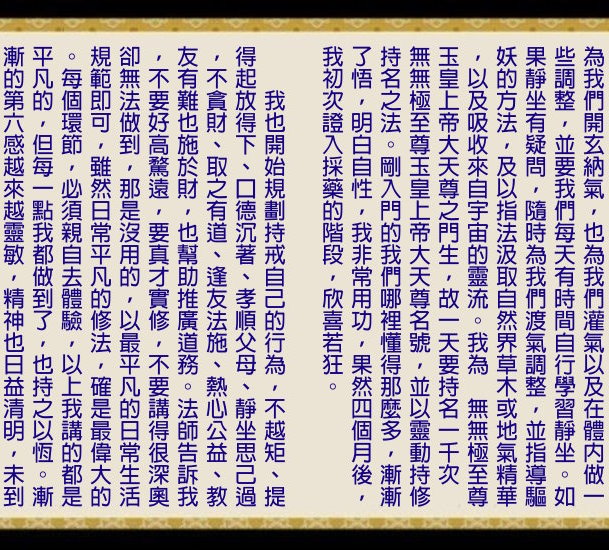 為我們開玄納氣，也為我們灌氣以及在體內做一
些調整，並要我們每天有時間自行學習靜坐。如
果靜坐有疑問，隨時為我們渡氣調整，並指導驅
妖的方法，及以指法汲取自然界草木或地氣精華
，以及吸收來自宇宙的靈流。我為　無無極至尊
玉皇上帝大天尊之門生，故一天要持名一千次　
無無極至尊玉皇上帝大天尊名號，並以靈動持修
持名之法。剛入門的我們哪裡懂得那麼多，漸漸
了悟，明白自性，我非常用功，果然四個月後，
我初次證入採藥的階段，欣喜若狂。
我也開始規劃持戒自己的行為，不越矩、提
得起放得下、口德沉著、孝順父母、靜坐思己過
，不貪財、取之有道、逢友法施、熱心公益、教
友有難也施於財，也幫助推廣道務。法師告訴我
，不要好高騖遠，要真才實修，不要講得很深奧
卻無法做到，那是沒用的，以最平凡的日常生活
規範即可，雖然日常平凡的修法，確是最偉大的
。每個環節，必須親自去體驗，以上我講的都是
平凡的，但每一點我都做到了，也持之以恆。漸
漸的第六感越來越靈敏，精神也日益清明，未到